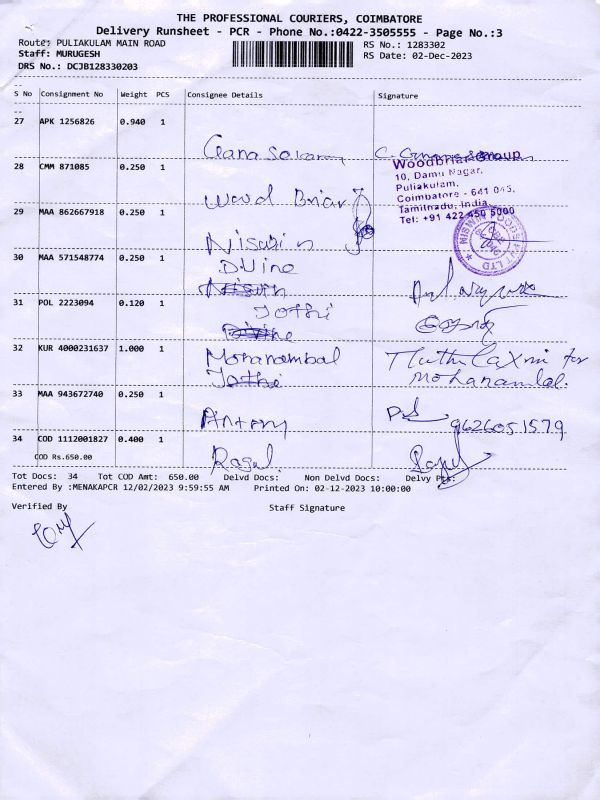 THE PROFESSIONAL COURIERS, COIMBATORE
Delivery Runsheet - PCR - Phone No.:0422-3505555 - Page No.:3
Route: PULIAKULAM MAIN ROAD
RS No.: 1283302
Staff: MURUGESH
RS Date: 02-Dec-2023
DRS No.: DCJB128330203
S No Consignment No Weight PCS Consignee Details Signature
27 APK 1256826 0.940 1
28 CMM 871085 0.250 1
Woodbriar Group
10, Damu Nagar,
Puliakulam,
Coimbatore - 641 045,
Tamilnadu, India.
Tel: +91 422 450 5000
Wood Briar
29 MAA 862667918 0.250 1
30 MAA 571548774 0.250 1
DVine
31 POL 2223094 0.120 1
Jothi
32 KUR 4000231637 1.000 1
Mohanambal
Muthulaxmi for
Mohanambal.
33 MAA 943672740 0.250 1
Antony 9626051579
34 COD 1112001827 0.400 1
COD Rs.650.00
Tot Docs: 34 Tot COD Amt: 650.00 Delvd Docs: Non Delvd Docs: Delvy Pts:
Entered By :MENAKAPCR 12/02/2023 9:59:55 AM Printed On: 02-12-2023 10:00:00
Verified By Staff Signature